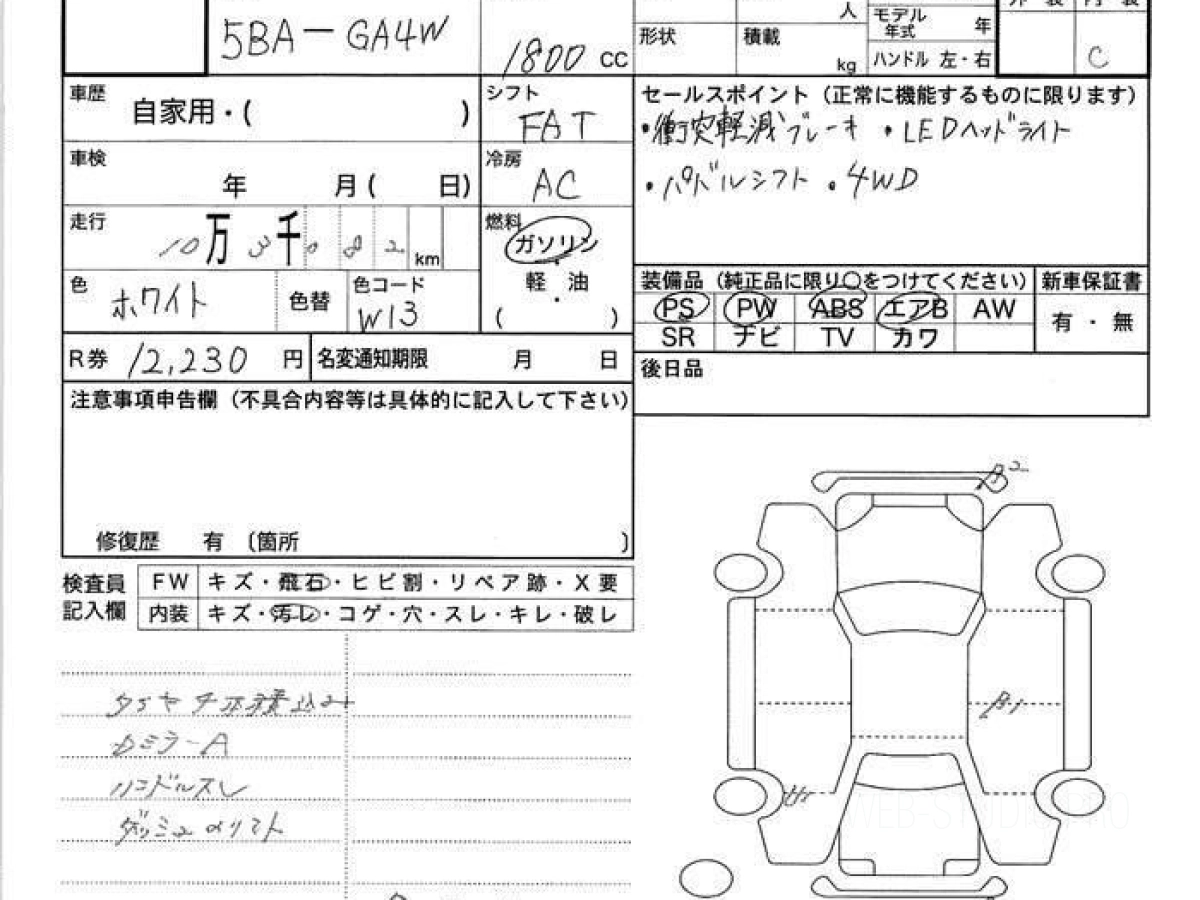 5BA－GA4W
1800 cc
人
モデル
年式
年
形状
積載
kg
ハンドル 左・右
C
車歴
自家用・( )
シフト
FAT
セールスポイント（正常に機能するものに限ります）
・衝突軽減ブレーキ ・LEDヘッドライト
・パドルシフト ・4WD
車検
年 月( 日)
冷房
AC
走行
10万3千082km
燃料
ガソリン
軽・油
( )
色
ホワイト
色替
色コード
W13
装備品（純正品に限り○をつけてください）
新車保証書
PS PW ABS エアB AW
有・無
SR ナビ TV カワ
R券 12,230 円
名変通知期限 月 日
後日品
注意事項申告欄（不具合内容等は具体的に記入して下さい）
修復歴 有〔箇所 〕
検査員
記入欄
FW キズ・飛石・ヒビ割・リペア跡・X要
内装 キズ・汚レ・コゲ・穴・スレ・キレ・破レ
タイヤ4本積込み
DミラーA
ハンドルスレ
A1
WEB-STUDIO.PRO